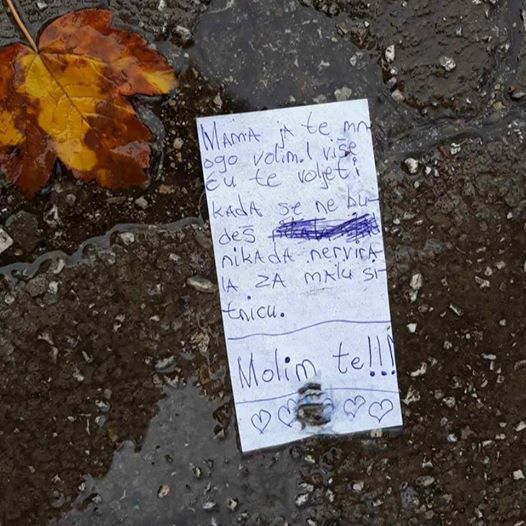 MAMA JA te mn-
ogo volim. I više
ću te voljeti
kADA se ne bu-
deš
nikADA nervira-
la ZA MALU si-
tnicu.
Molim te!!!